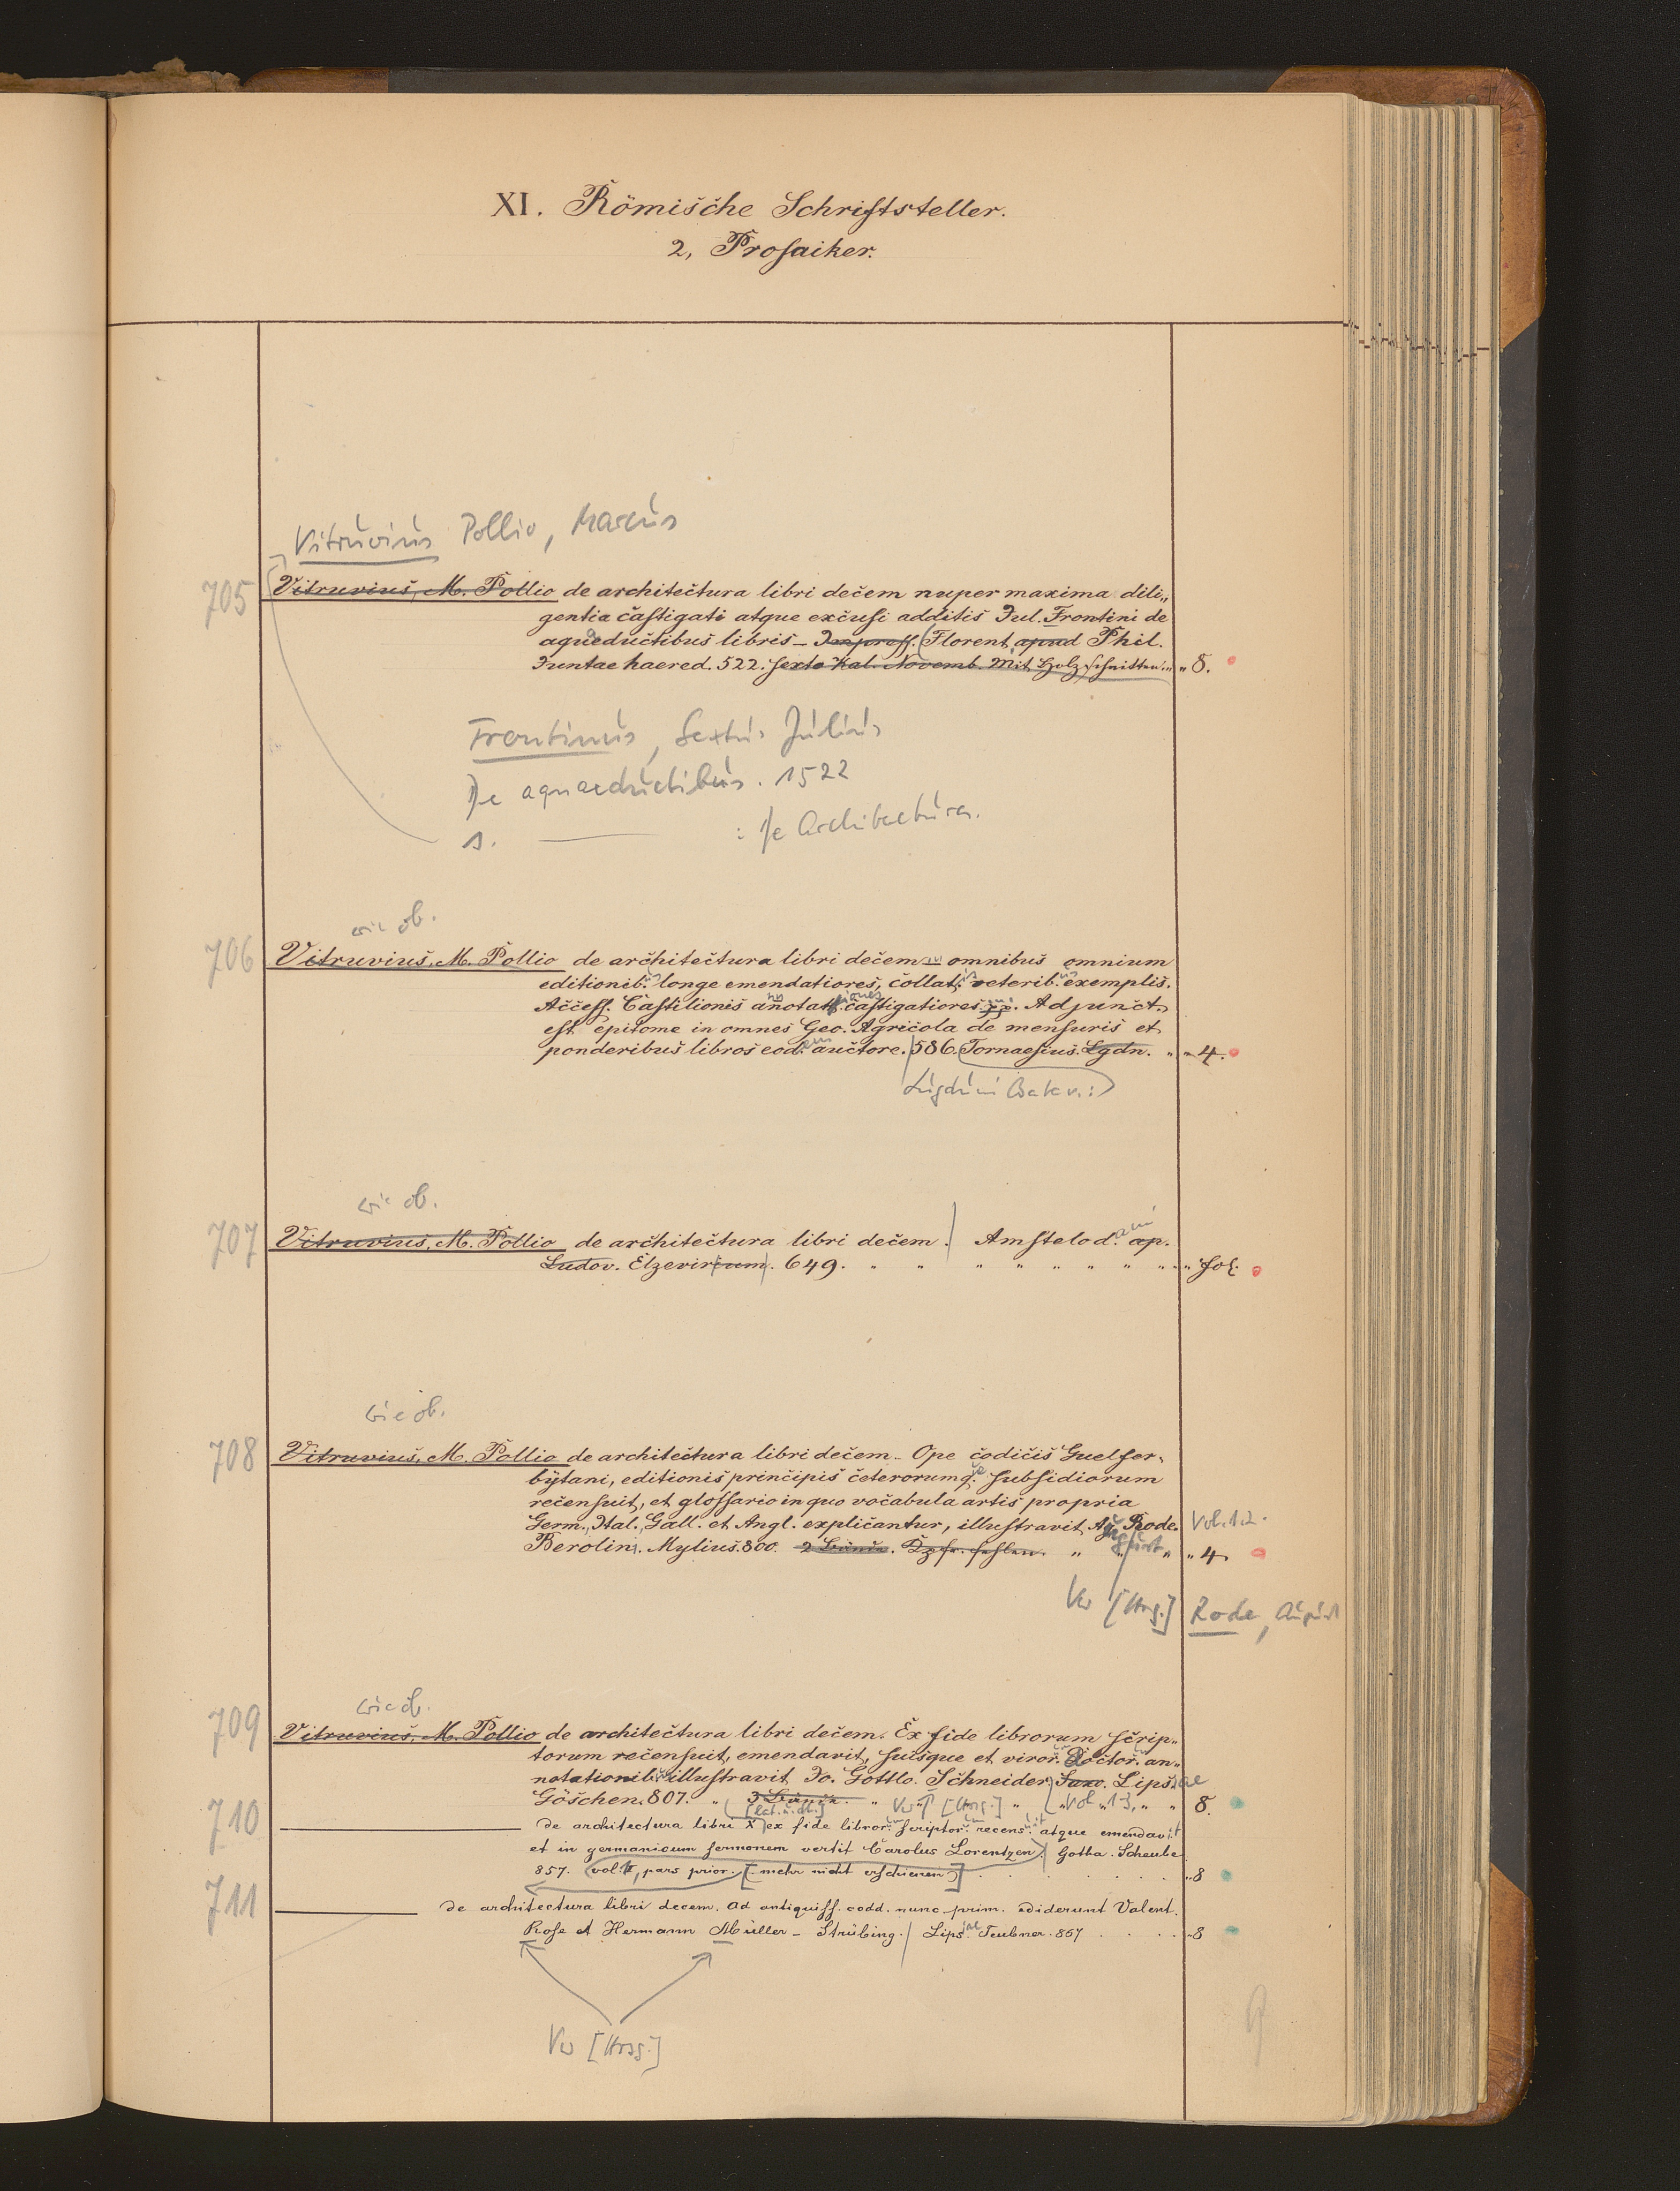 XI. Römische Schriftsteller.
2, Prosaiker.
Vitruvius Pollio, Marcus
705 Vitruvius, M. Pollio de architectura libri decem nuper maxima dili„
gentia castigati atque excusi additis Jul. Frontini de
aqueductibus libris _ Florent. apud Phil.
Juntae haered. 522. sexto Kal. Novemb. Mit Holzschnitten. „ „ 8.
Frontinus, Sextus Julius
De aquaeductibus. 1522
s. ——— : De Architectura.
wie ob.
706 Vitruvius, M. Pollio de architectura libri decem _ omnibus omnium
editionib. us longe emendatiores, collat. is veterib. us exemplis.
Access. Castilionis annotat castigatiores . Adjunct.
est epitome in omnes Geo. Agricola de mensuris et
ponderibus libros eod. em auctore. 586. Tornaesius. Lgdn. „ „ 4.
Lugduni Batav.:
wie ob.
707 Vitruvius, M. Pollio de architectura libri decem. Amstelod. ami ap.
Ludov. Elzevirium. 649. „ „ „ „ „ „ „ „ „ fol.
wie ob.
708 Vitruvius, M. Pollio de architectura libri decem _ Ope codicis Guelfer„
bytani, editionis principis ceterorumq. ue subsidiorum
recensuit, et glossario in quo vocabula artis propria
Germ., Ital., Gall. et Angl. explicantur, illustravit Rode. Vol. 1.2.
Berolin. Mylius. 800. 2 Bände. fehlen. „ „ „ 4
Vw [Hrsg.] Rode, August
wie ob.
709 Vitruvius, M. Pollio de architectura libri decem. Ex fide librorum scrip„
torum recensuit, emendavit, suisque et viror. um doctor. um an„
notationib. us illustravit Jo. Gottlo. Schneider, Saxo. Lips. iae
Göschen. 807. „ 3 Bände. „ Vw [Hrsg.] „ vol. 1-3, „ „ 8.
[lat. u. dt.]
710 ——— de architectura libri X ex fide libror. um scriptor. um recens. uit atque emendavit
et in germanicum sermonem vertit Carolus Lorentzen. Gotha. Scheube
857. vol. I, pars prior. [mehr nicht erschienen] . . . . . . „ 8
711 ——— de architectura libri decem. ad antiquiss. codd. nunc prim. ediderunt Valent.
Rose et Hermann Müller - Strübing. Lips. iae Teubner. 867 . . . . „ 8
Vw [Hrsg.]